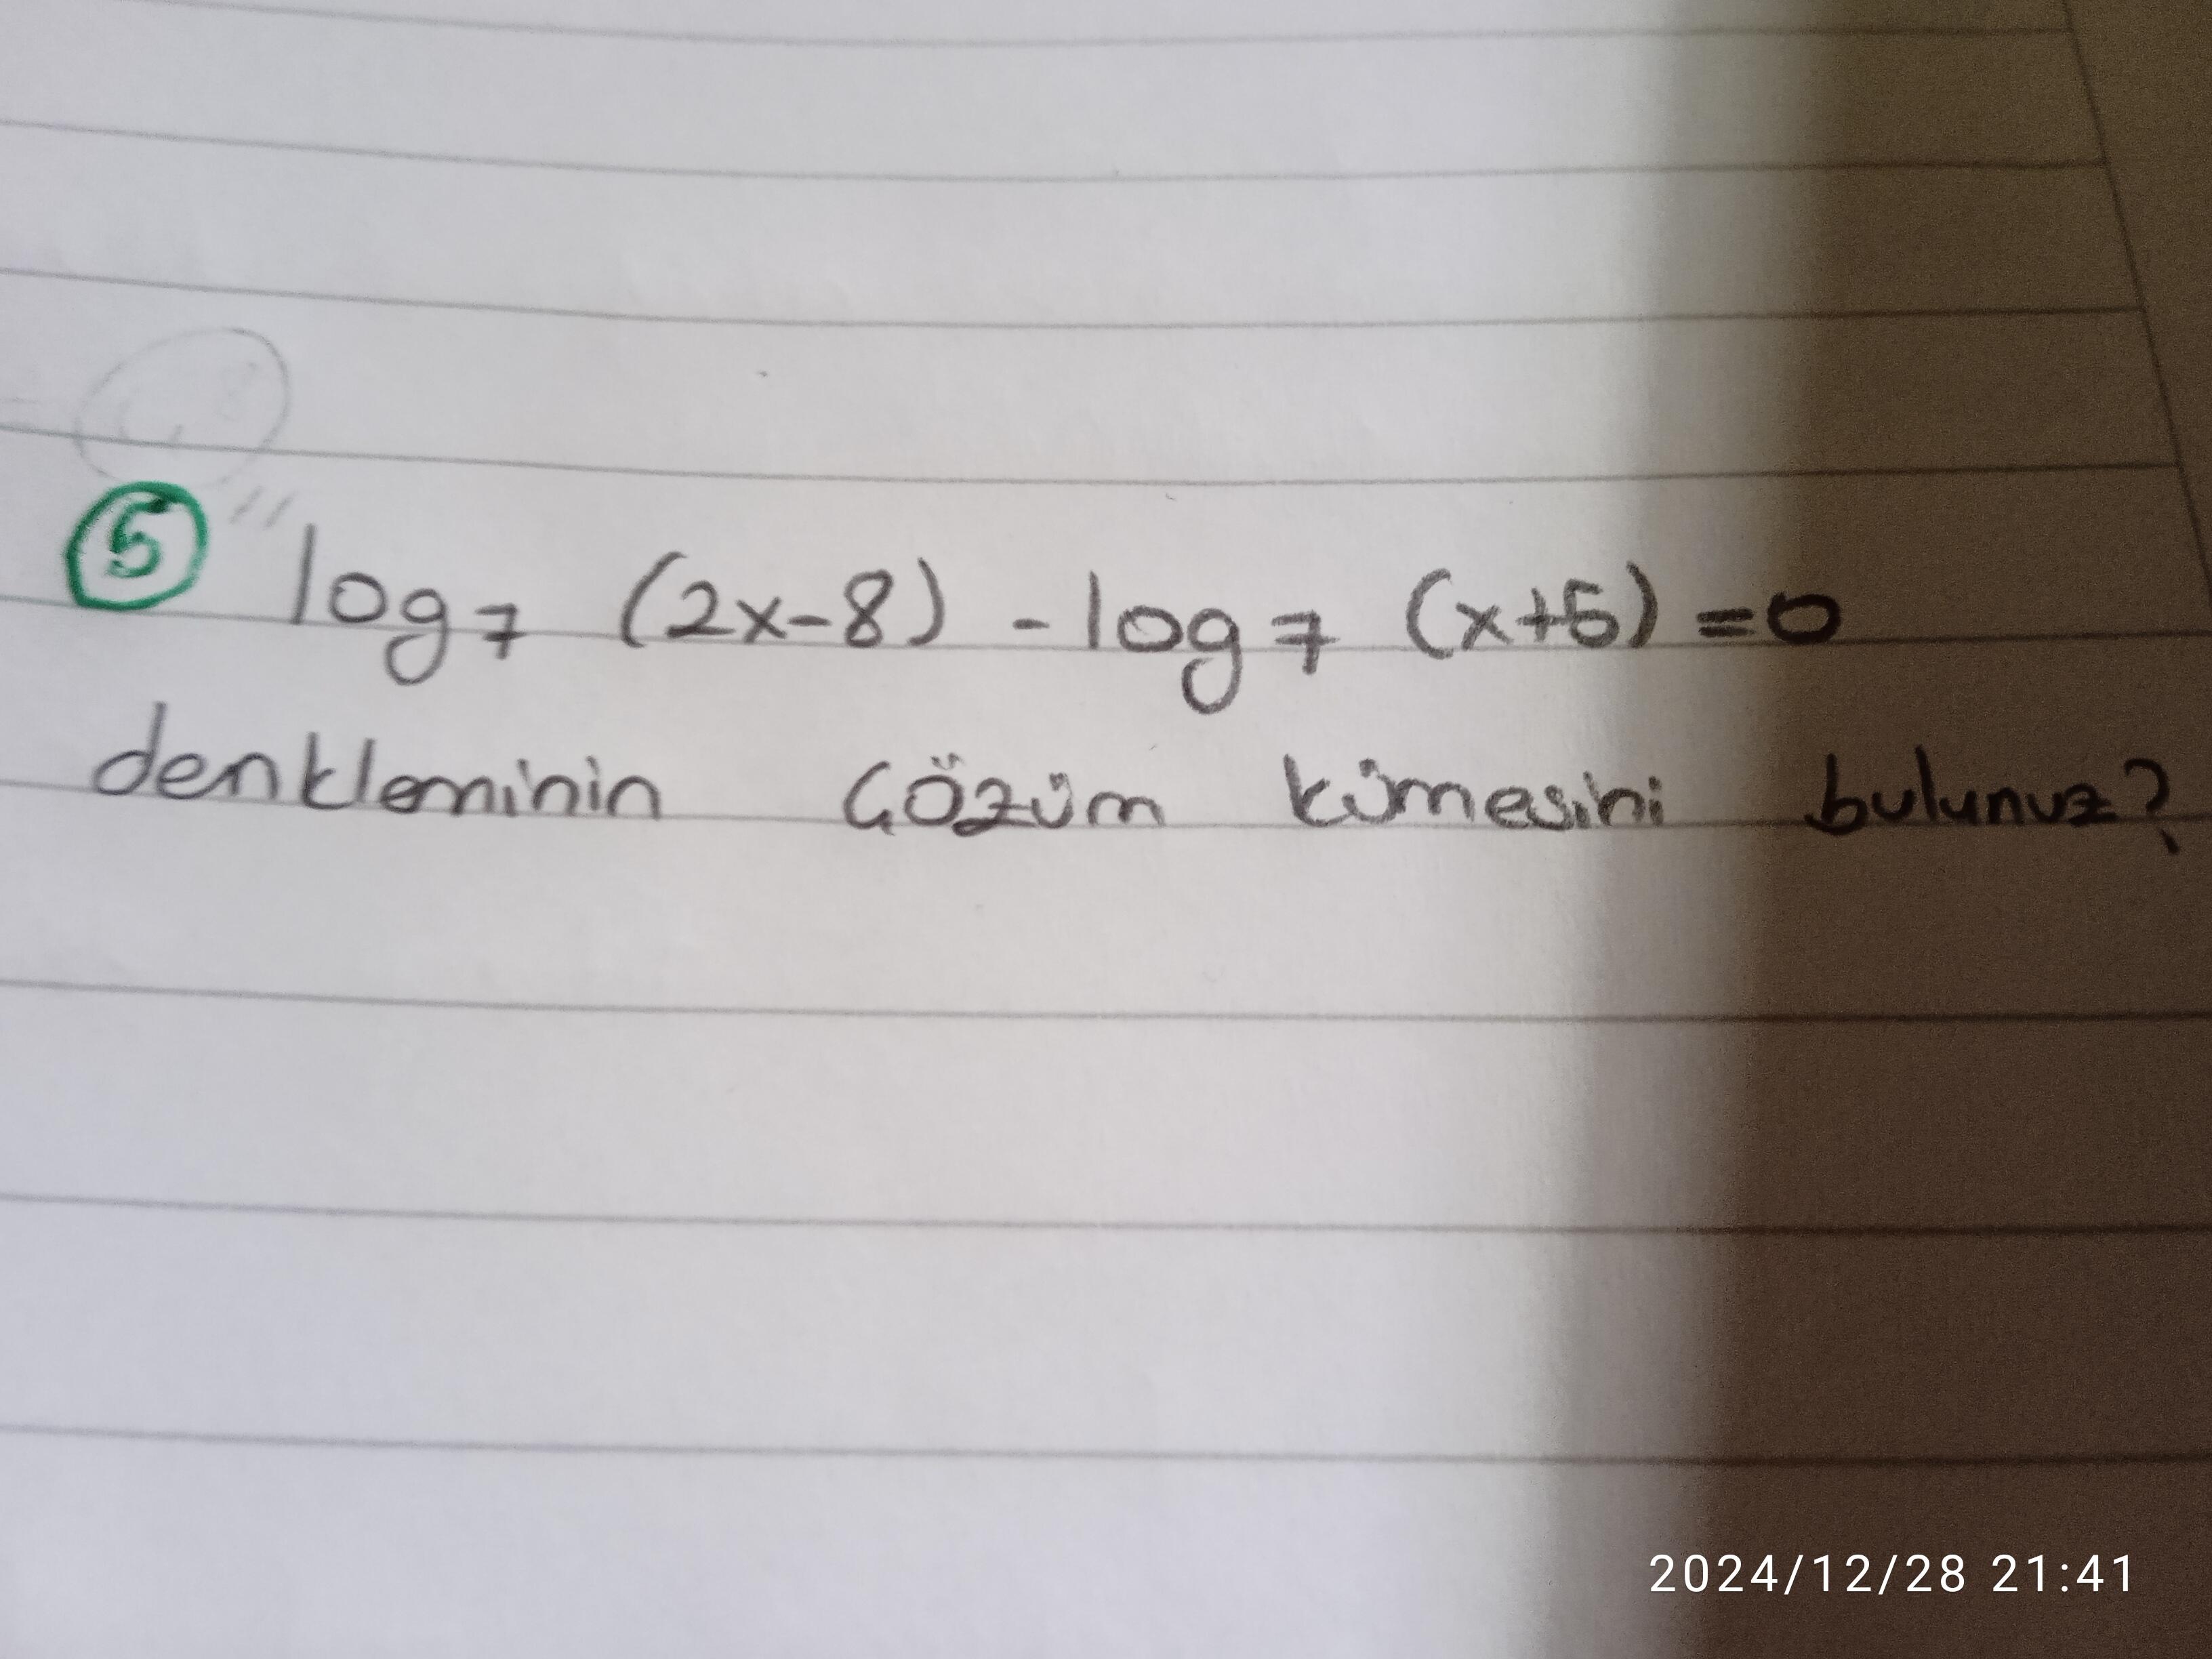 5 log₇ (2x-8) - log₇ (x+5) = 0
denkleminin çözüm kümesini bulunuz?
2024/12/28 21:41